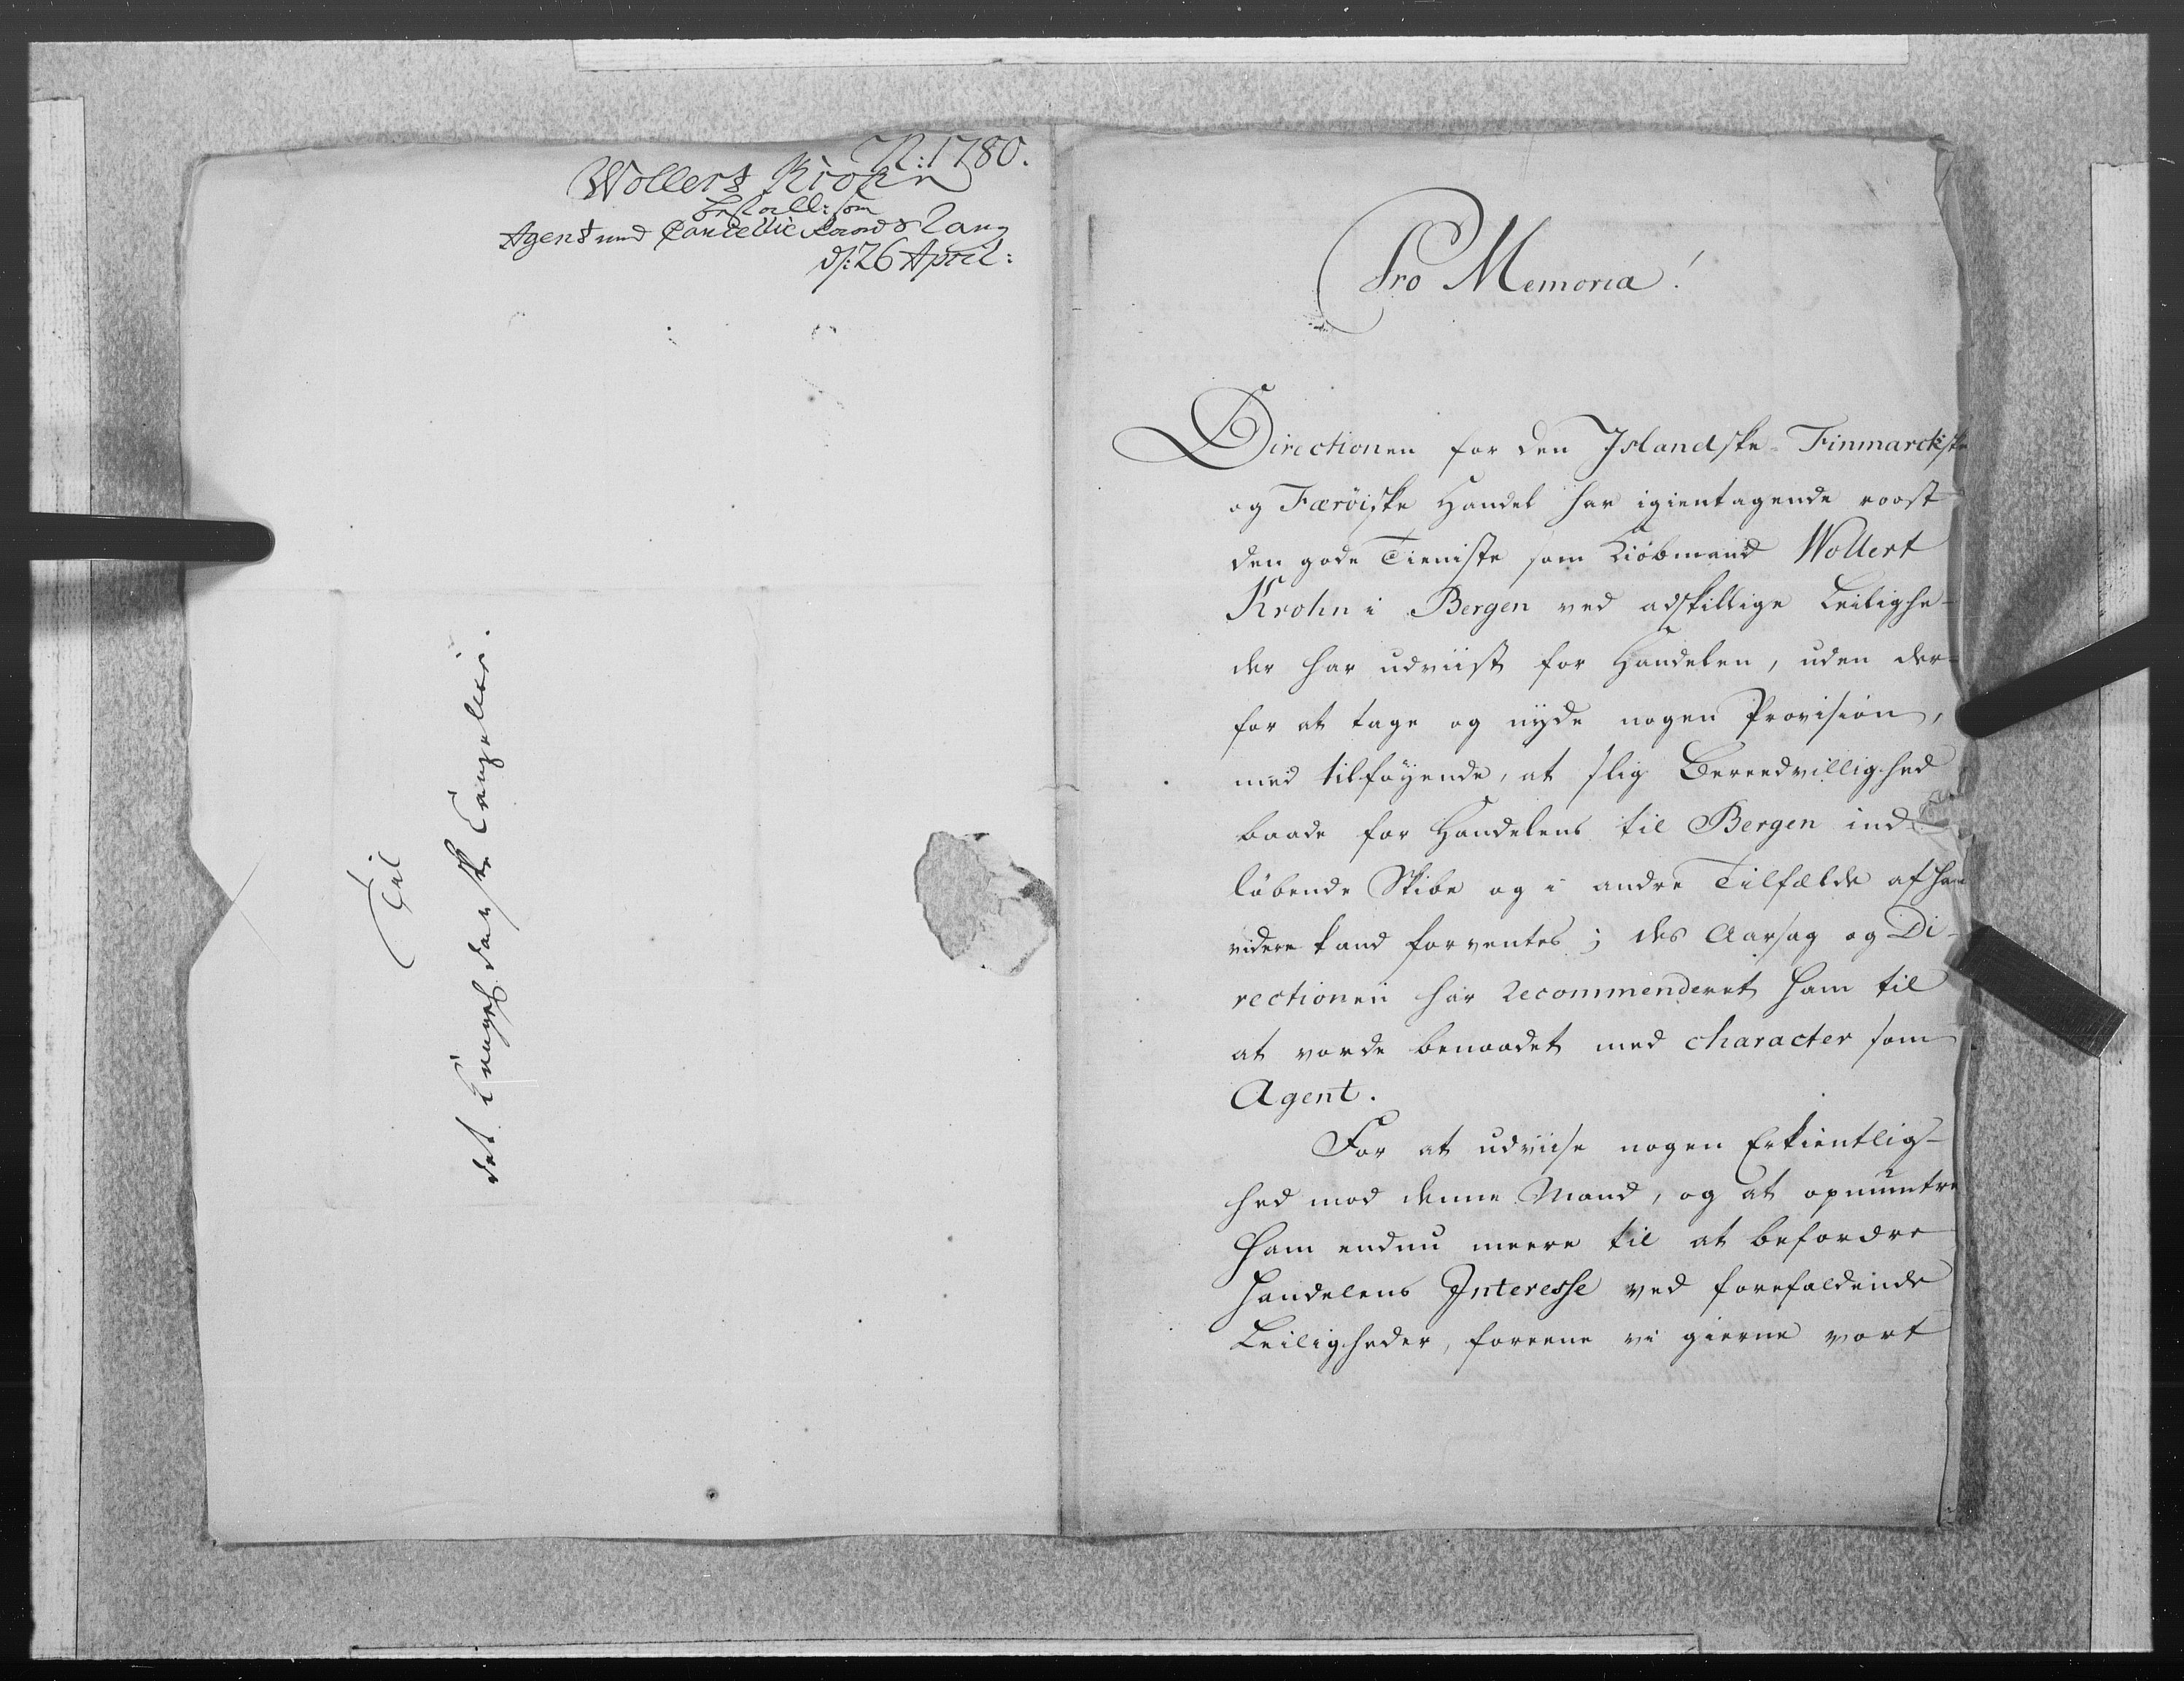 N: 1780.
Wollert Krohn
bestall: som
Agent med Cancellie Raads Rang
d: 26 April:
Til
det Kongel. danske Cancellie.
Pro Memoria!
Directionen for den Islandske Finmarckske
og Færöiske Handel har igientagende roest
den gode Tieniste som Kiöbmand Wollert
Krohn i Bergen ved adskillige Leilighe-
der har udviist for Handelen, uden der-
for at tage og nyde nogen Provision,
med tilföyende, at slig Bereedvillighed
baade for Handelens til Bergen ind-
löbende Skibe og i andre Tilfælde af ham
videre kand forventes; des Aarsag og Di-
rectionen har Recommenderet ham til
at vorde benaadet med character som
Agent.
For at udviise nogen Erkientlig-
hed mod denne Mand, og at opmuntre
ham endnu meere til at befordre
Handelens Interesse ved forefaldende
Leiligheder, foreene vi gierne vort